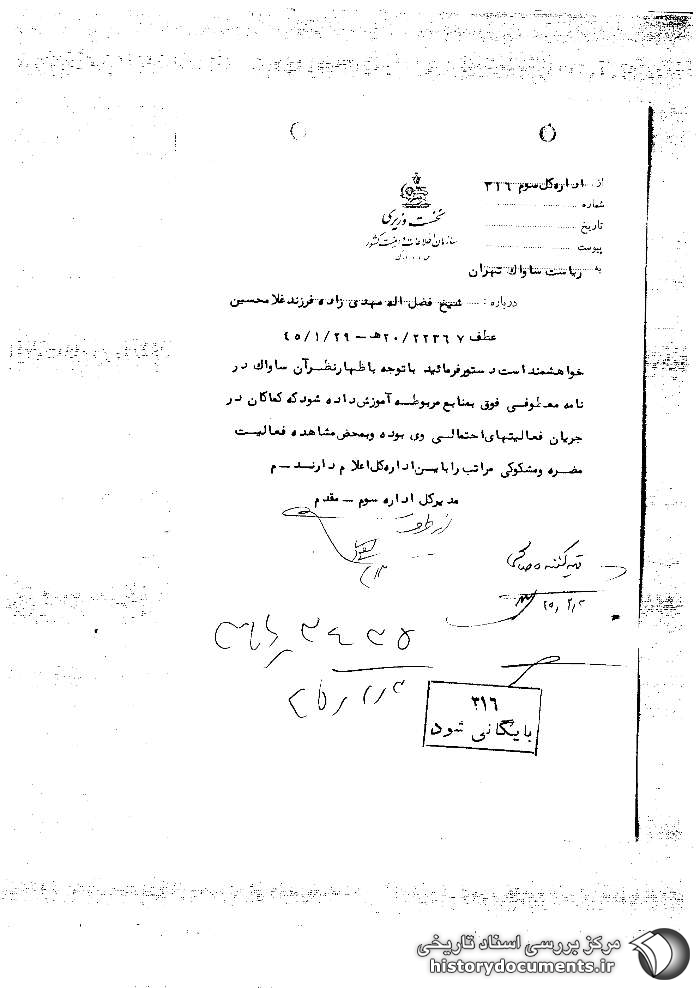 از اداره کل سوم ۳۱۶
شماره
تاریخ
پیوست
نخست وزیری
سازمان اطلاعات و امنیت کشور
به ریاست ساواك تهران
درباره : شیخ فضل اله مهدی زاده فرزند غلامحسین
عطف ۲۰/۲۲۳۶۷ هـ – ۴۵/۱/۲۹
خواهشمند است دستور فرمائید با توجه باظهارنظر آن ساواك در
نامه معطوفی فوق بمنابع مربوطه آموزش داده شود که کماکان در
جریان فعالیتهای احتمالی وی بوده وبمحض مشاهده فعالیت
مضره ومشکوکی مراتب را باین اداره کل اعلام دارند . م
مدیرکل اداره سوم – مقدم
از طرف
۳۱۶
بایگانی شود
مرکز بررسی اسناد تاریخی
historydocuments.ir